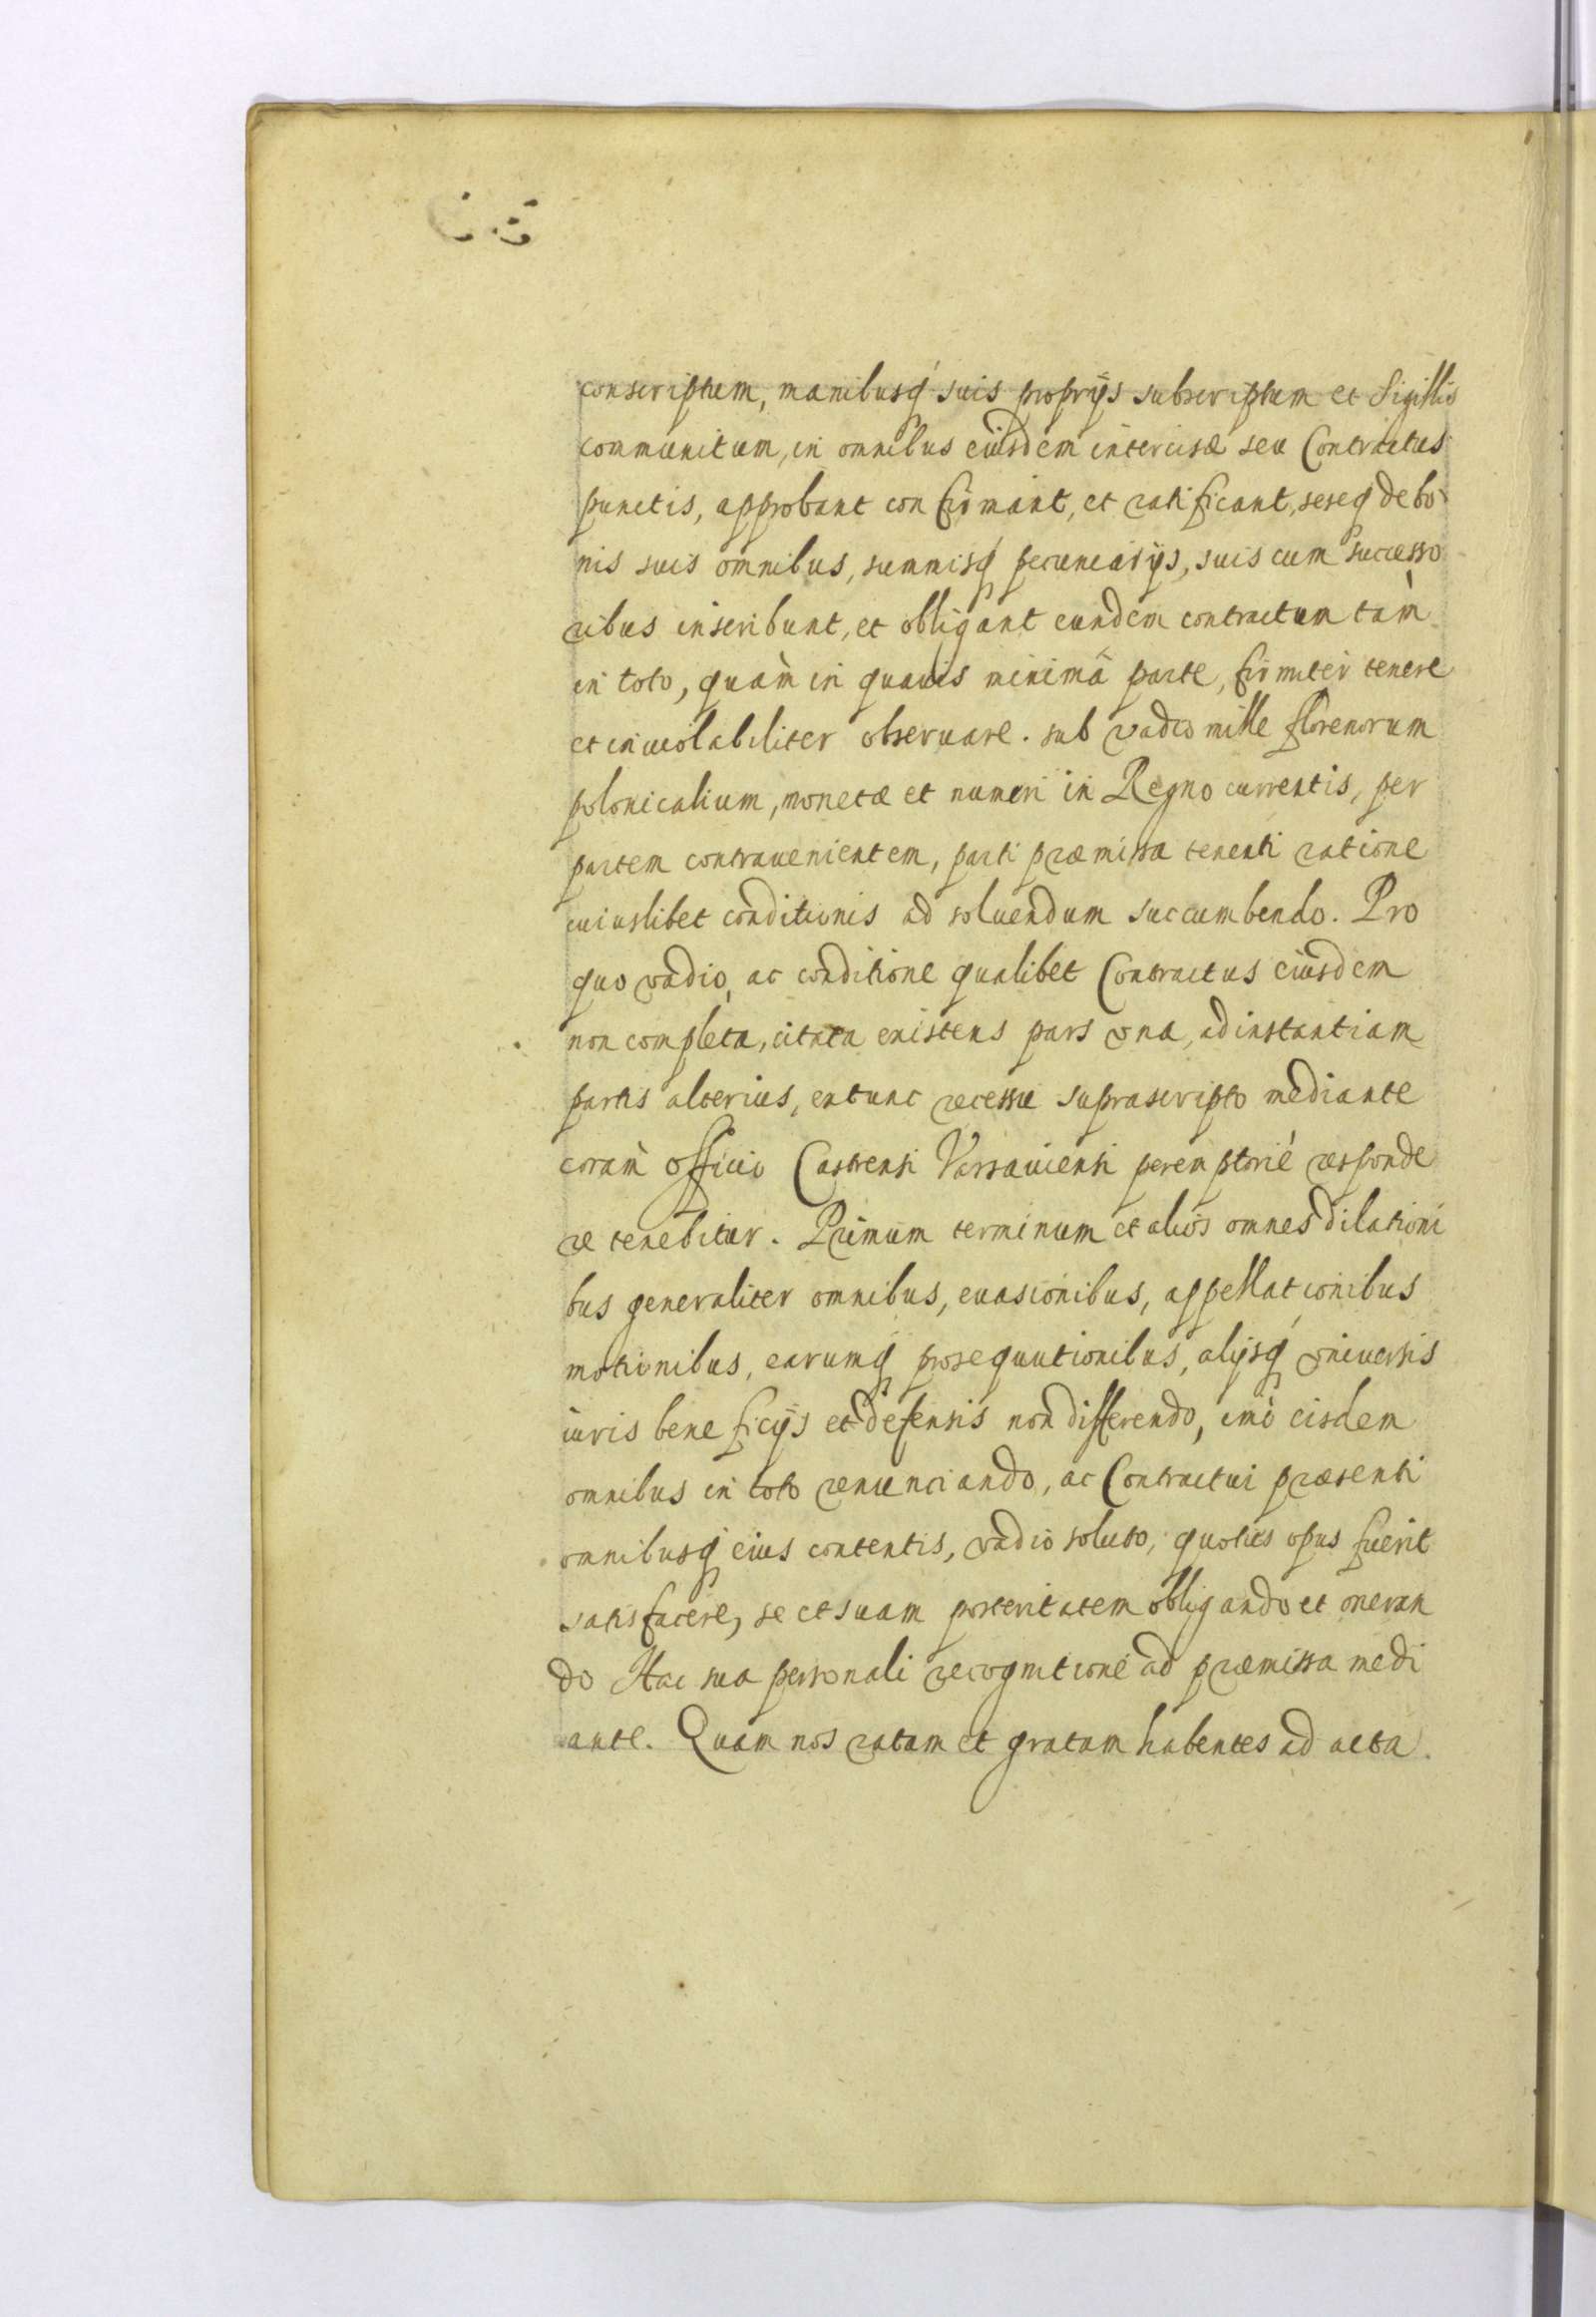 conscriptum, manibusq́ suis proprijs subscriptum et Sigillis
communitum, in omnibus eiusdem intercisæ seu Contractus
punctis, approbant confirmant, et ratificant, seseq́ de bo
nis suis omnibus, summisq́ pecuniarijs, suis cum successo
ribus inscribunt, et obligant eundem contractum tàm
in toto, quàm in quauis minimâ parte, firmiter tenere
et inuiolabiliter obseruare. sub vadio mille florenorum
polonicalium, monetæ et numeri in Regno currentis, per
partem contrauenientem, parti præmissa tenenti ratione
cuiuslibet conditionis ad soluendum succumbendo. Pro
quo vadio, ac conditione qualibet Contractus eiusdem
non completa, citata existens pars vna, ad instantiam
partis alterius, extunc recessu suprascripto mediante
coràm officio Castrensi Varsauiensi peremptoriè responde
re tenebitur. Primum terminum et alios omnes dilationi
bus generaliter omnibus, euasionibus, appellationibus
motionibus, earumq́ prosequutionibus, alijsq́ vniuersis
iuris beneficijs et defensis non differendo, imò eisdem
omnibus in toto renunciando, ac Contractui præsenti
omnibusq́ eius contentis, vadio soluto, quoties opus fuerit
satisfacere, se et suam posteritatem obligando et oneran
do Hac sua personali recognitione ad præmissa medi
ante. Quam nos ratam et gratam habentes ad acta